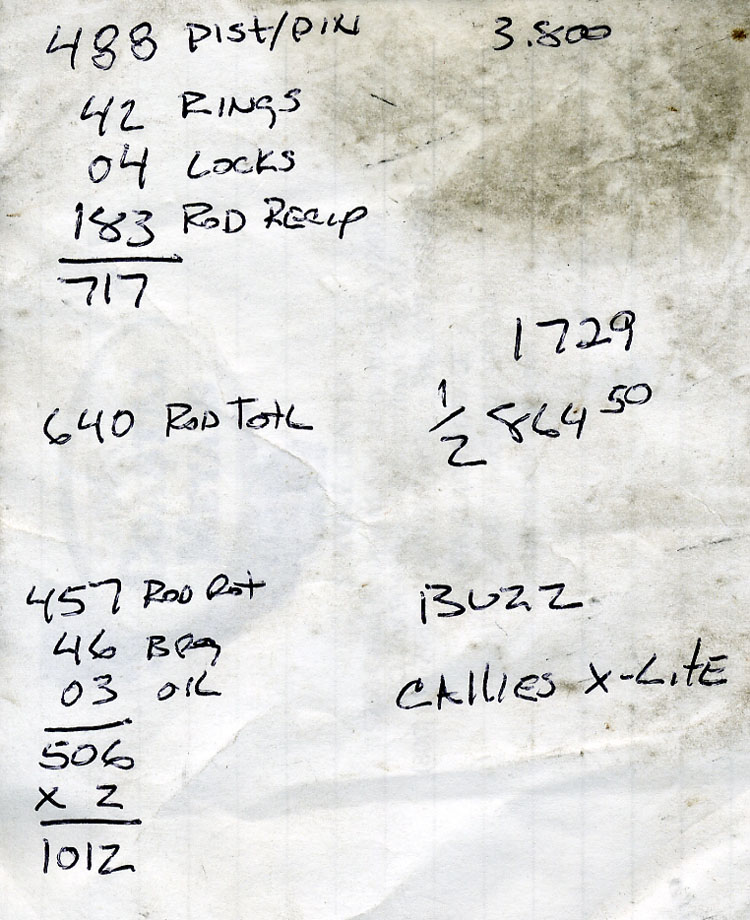 488 PIST/PIN
3.800
42 RINGS
04 LOCKS
183 ROD RECIP
717
1729
1/2 864 50
640 ROD TOTL
457 ROD ROT
46 BRG
03 OIL
506
x 2
1012
BUZZ
CALLIES X-LITE